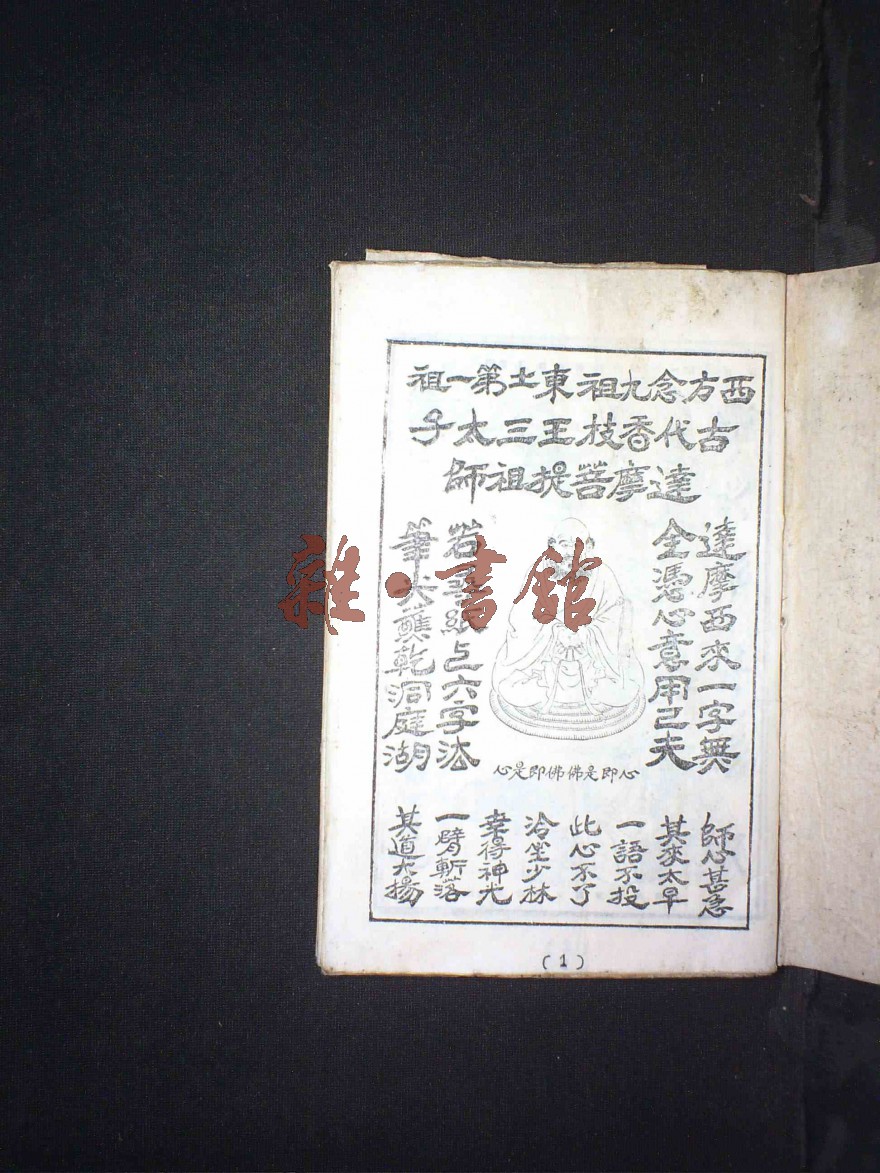 西方念九祖東土第一祖
古代香枝王三太子
達摩菩提祖師
達摩西來一字無
全憑心意用工夫
若紙上六字法
筆尖蘸乾洞庭湖
心即是佛佛即是心
師心甚急
其來太早
一語不投
此心不了
冷坐少林
幸得神光
一臂斬落
其道大揚
(1)
雜·書館